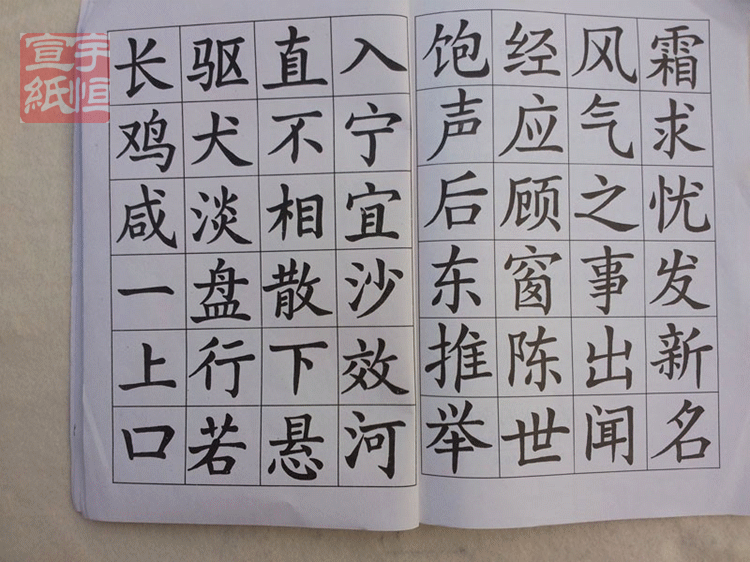 宇恒
宣紙
长驱直入
鸡犬不宁
咸淡相宜
一盘散沙
上行下效
口若悬河
饱经风霜
声应气求
后顾之忧
东窗事发
推陈出新
举世闻名